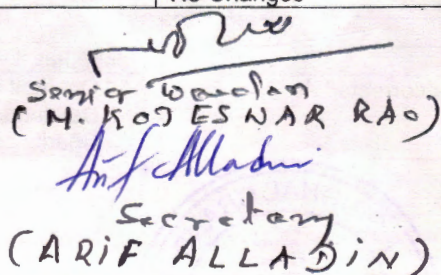 No Changes
Senior Warden
(M. KOTESWAR RAO)
Arif Alladin
Secretary
(ARIF ALLADIN)